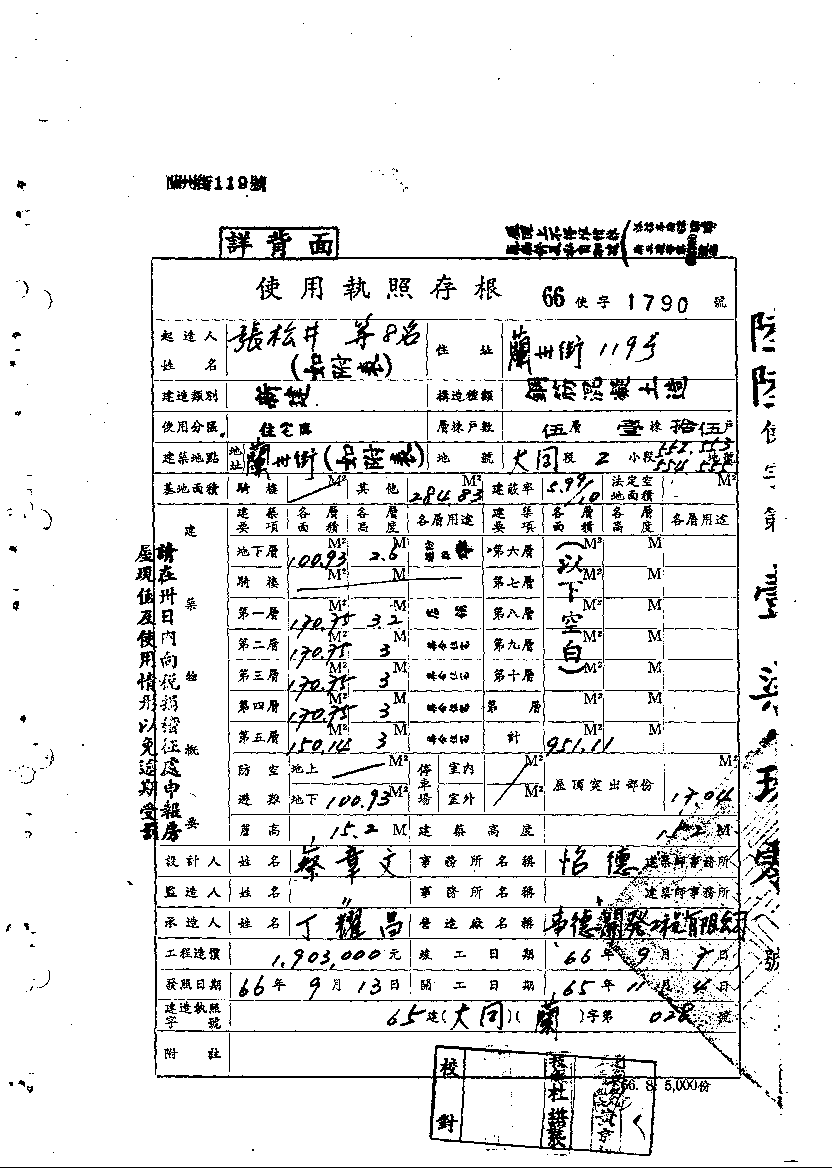 119號
詳背面
使用執照存根 66 使字 1790 號
起造人姓名 張松井 等8名 (如附表) 住址 蘭州街 119号
建造類別 新建 構造種類 鋼筋混凝土造
使用分區 住宅區 層棟戶數 伍層 壹棟 拾伍戶
建築地點 地址 蘭州街(如附表) 地號 大同段 2 小段 552.553 554.555 地號
基地面積 騎樓 M² 其他 284.83 M² 建蔽率 5.99/10 法定空地面積 M²
建築要項 各層面積 各層高度 各層用途 建築要項 各層面積 各層高度 各層用途
地下層 100.93 M² 2.6 M 第六層 (以下空白) M² M
騎樓 M² M 第七層 M² M
第一層 170.75 M² 3.2 M 第八層 M² M
第二層 170.75 M² 3 M 第九層 M² M
第三層 170.75 M² 3 M 第十層 M² M
第四層 170.75 M² 3 M 第 層 M² M
第五層 150.14 M² 3 M 計 951.11 M² M
建築物概要
防空避難 地上 M² 停車場 室內 M² 屋頂突出部份 17.04 M²
地下 100.93 M² 室外 M²
簷高 15.2 M 建築高度 M
設計人 姓名 蔡章文 事務所名稱 怡德 建築師事務所
監造人 姓名 〃 事務所名稱 〃 建築師事務所
承造人 姓名 丁耀昌 營造廠名稱
工程造價 1,903,000 元 竣工日期 66年 9月 7日
發照日期 66年 9月 13日 開工日期 65年 11月 4日
建造執照字號 65建(大同)(蘭)字第 028 號
附註
66. 8. 5,000份
校對
請在卅日內向稅捐稽征處申報房
屋現值及使用情形以免逾期受罰
使字第
號